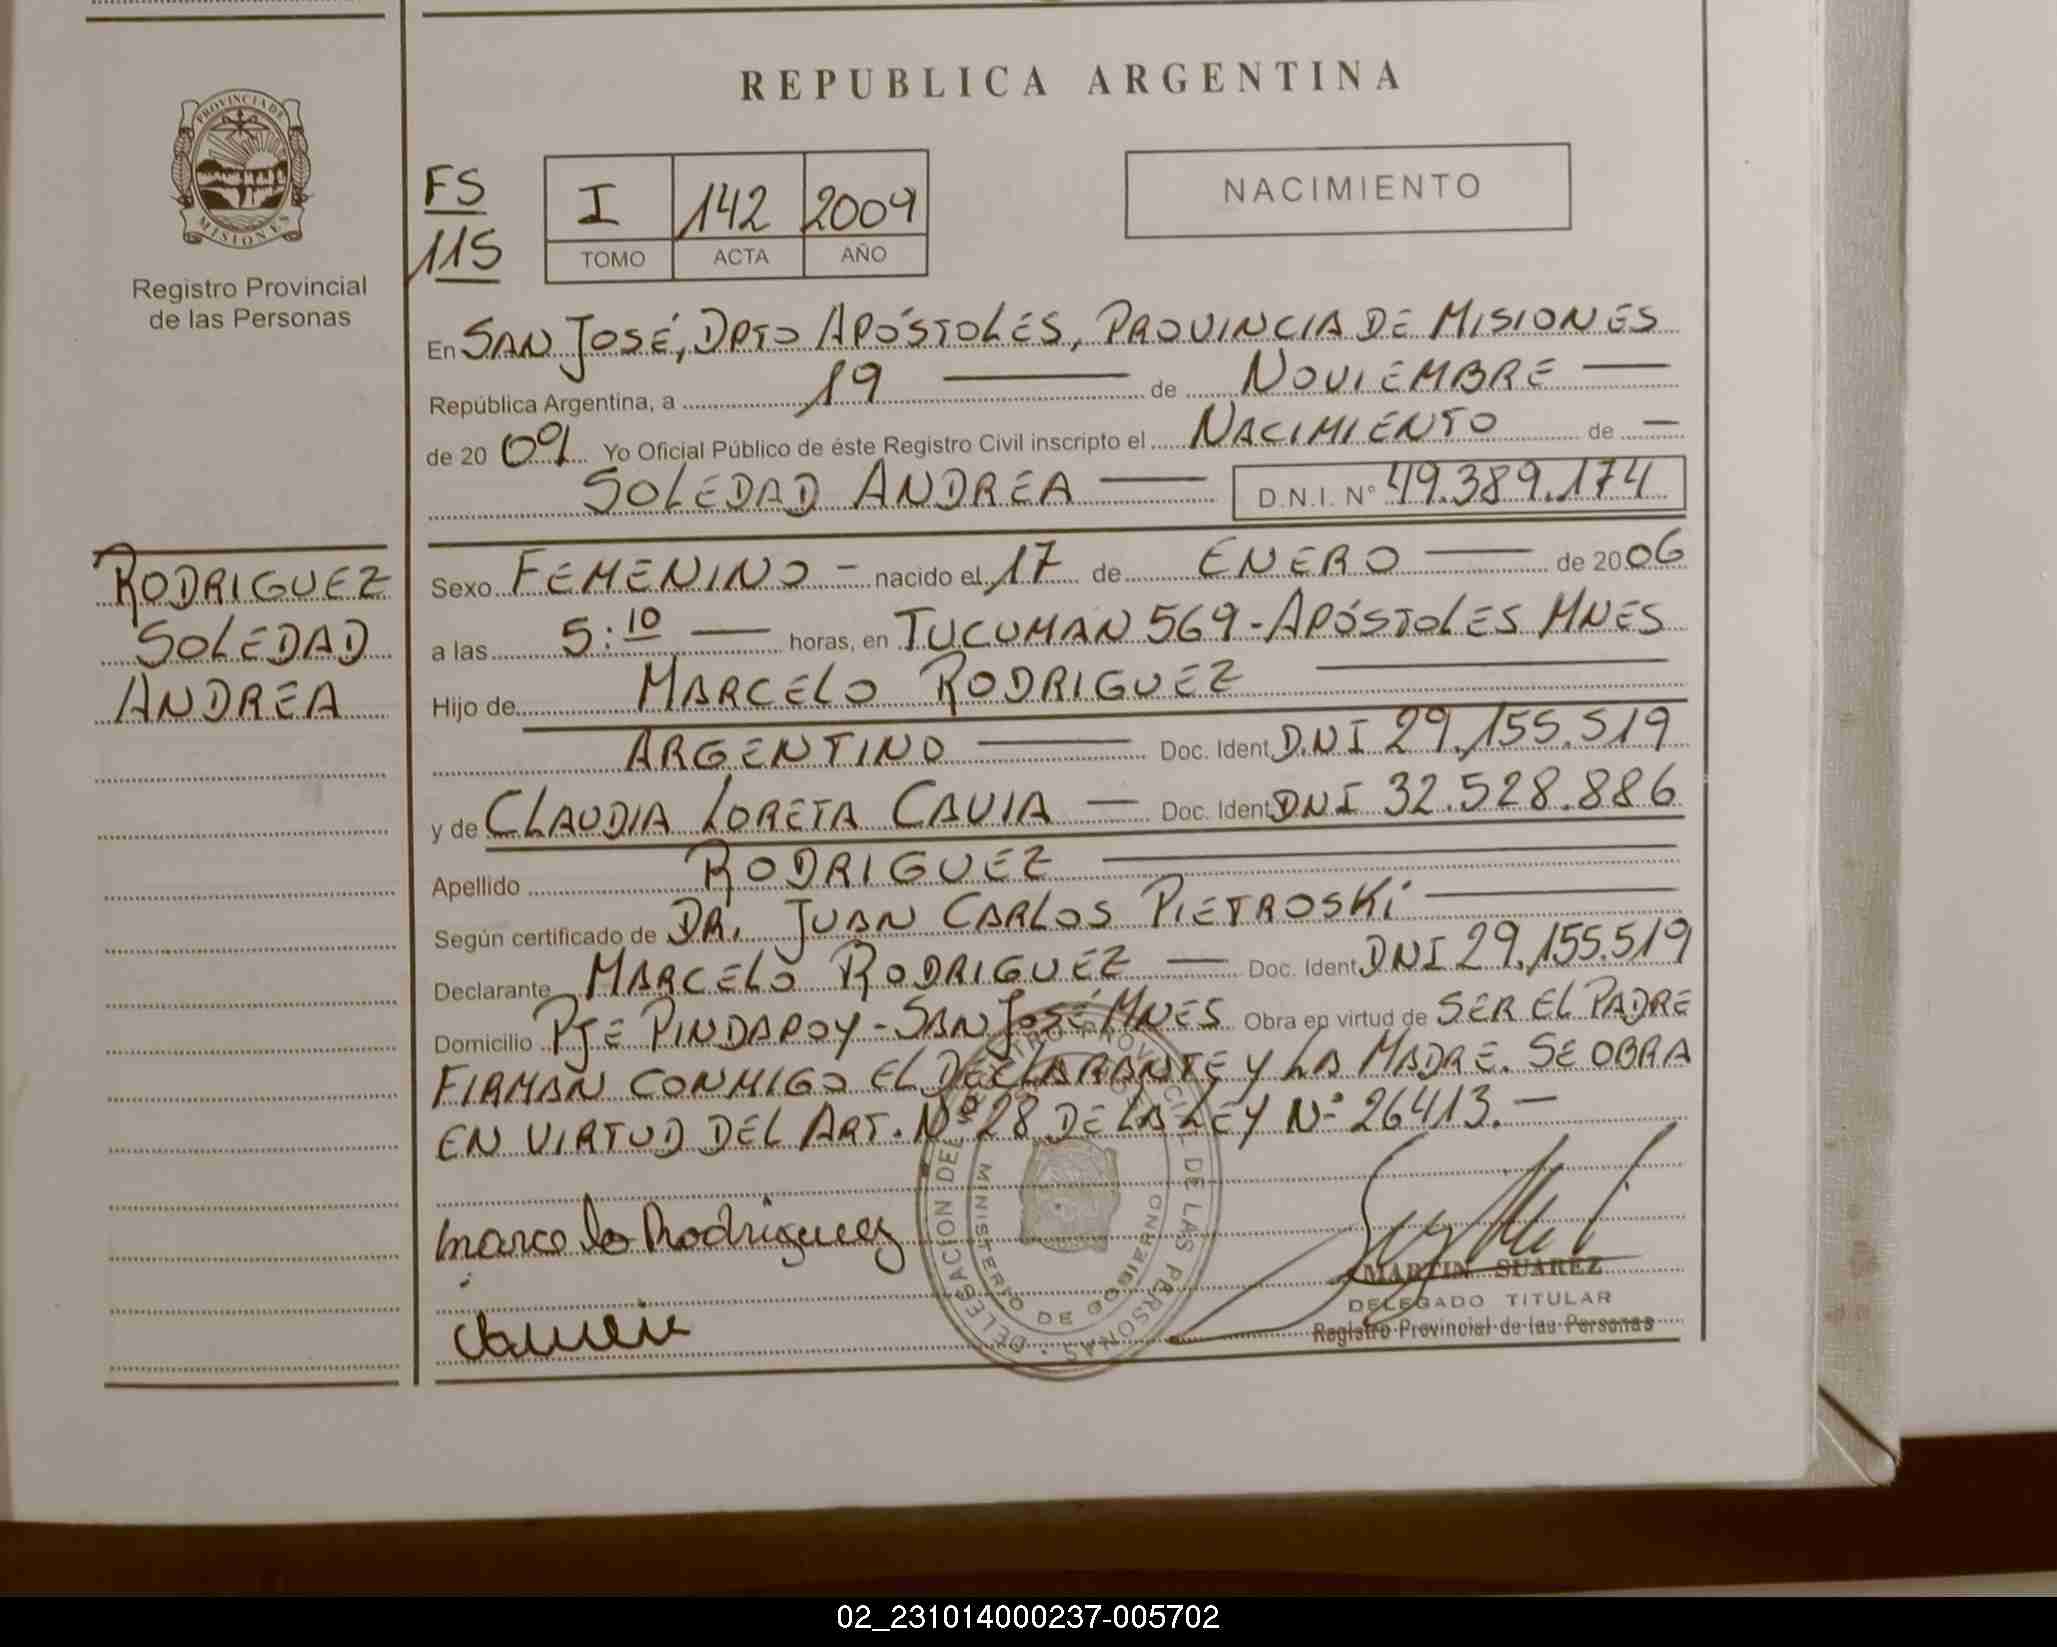 REPUBLICA ARGENTINA
PROVINCIA DE
MISIONES
Registro Provincial
de las Personas
FS
115
I 142 2009
TOMO ACTA AÑO
NACIMIENTO
En SAN JOSÉ, DPTO APÓSTOLES, PROVINCIA DE MISIONES
República Argentina, a 19 de NOVIEMBRE
de 20 09 Yo Oficial Público de éste Registro Civil inscripto el NACIMIENTO de
SOLEDAD ANDREA D.N.I. N° 49.389.174
RODRIGUEZ
SOLEDAD
ANDREA
Sexo FEMENINO - nacido el 17 de ENERO de 2006
a las 5:10 horas, en TUCUMAN 569 - APÓSTOLES MNES
Hijo de MARCELO RODRIGUEZ
ARGENTINO Doc. Ident DNI 29.155.519
y de CLAUDIA LORETA CAVIA Doc. Ident DNI 32.528.886
Apellido RODRIGUEZ
Según certificado de DR. JUAN CARLOS PIETROSKi
Declarante MARCELO RODRIGUEZ Doc. Ident DNI 29.155.519
Domicilio PJE PINDAPOY - SAN JOSÉ MNES Obra en virtud de SER EL PADRE
FIRMAN CONMIGO EL DECLARANTE Y LA MADRE. SE OBRA
EN VIRTUD DEL ART. Nº 28 DE LA LEY Nº 26413.-
Marcelo Rodriguez
DELEGACION DEL REGISTRO PROVINCIAL DE LAS PERSONAS
MINISTERIO DE GOBIERNO
MARTIN SUAREZ
DELEGADO TITULAR
Registro Provincial de las Personas
02_231014000237-005702